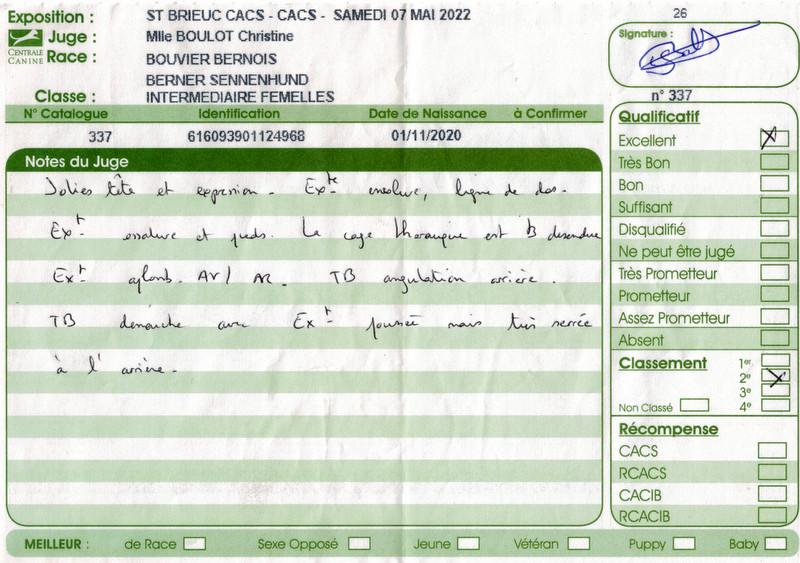 Exposition : ST BRIEUC CACS - CACS - SAMEDI 07 MAI 2022
26
Juge : Mlle BOULOT Christine
Signature :
CENTRALE CANINE
Race : BOUVIER BERNOIS
BERNER SENNENHUND
Classe : INTERMEDIAIRE FEMELLES
n° 337
N° Catalogue Identification Date de Naissance à Confirmer
337 616093901124968 01/11/2020
Notes du Juge
Jolies tête et expression. Exte encolure, ligne de dos.
Ext ossature et pieds. La cage thoracique est B descendue
Ext aplombs. AV/ AR. TB angulation arrière.
TB démarche avec Ext poussée mais très serrée
à l'arrière.
Qualificatif
Excellent
Très Bon
Bon
Suffisant
Disqualifié
Ne peut être jugé
Très Prometteur
Prometteur
Assez Prometteur
Absent
Classement 1er
2e
3e
Non Classé 4e
Récompense
CACS
RCACS
CACIB
RCACIB
MEILLEUR : de Race Sexe Opposé Jeune Vétéran Puppy Baby